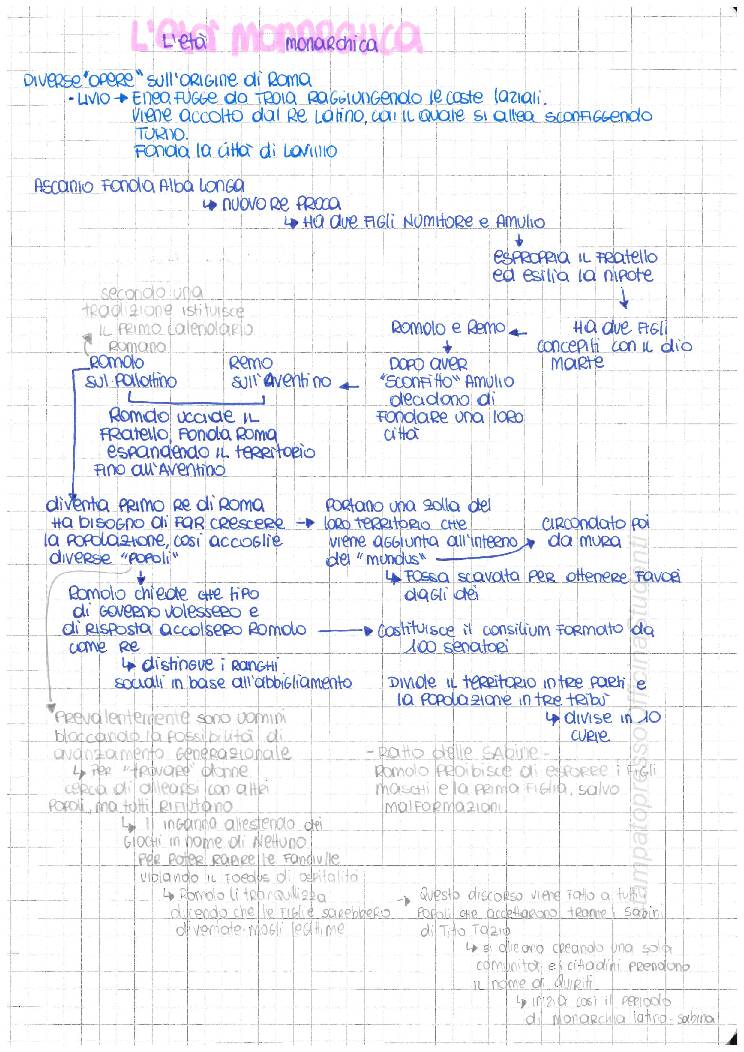 L'età monarchica
DIVERSE "OPERE" SULL'ORIGINE di ROMA
- LIVIO → ENEA FUGGE da TROIA RAGGIUNGENDO le coste laziali.
Viene accolto dal Re Latino, con il quale si allea sconfiggendo
TURNO.
Fonda la città di Lavinio
ASCANIO Fonda Alba Longa
↳ NUOVO RE PROCA
↳ HA due FIGLI NUMITORE e AMULIO
ESPROPRIA IL FRATELLO
ed esilia la nipote
HA due FIGLI
concepiti con il dio
MARTE
Romolo e Remo
DOPO aver
"SCONFITTO" Amulio
decidono di
FONDARE una loro
città
secondo una
TRADIZIONE istituisce
IL PRIMO Calendario
Romano
ROMOLO
sul Pallottino
REMO
SULL'AVENTINO
Romolo uccide IL
FRATELLO, Fonda Roma
espandendo IL territorio
Fino all'Aventino
diventa PRIMO RE di ROMA
HA BISOGNO di FAR CRESCERE →
la POPOLAZIONE, così accoglie
diverse "POPOLI"
PORTANO una zolla del
loro TERRITORIO che
viene aggiunta all'interno
del "mundus"
CIRCONDATO poi
da mura
↳ FOSSA SCAVATA PER OTTENERE FAVORI
dagli dei
Romolo chiede che tipo
di GOVERNO volessero e
di RISPOSTA accolsero Romolo
come RE
→ Costituisce il consilium FORMATO da
100 senatori
↳ distingue i RANGHI
sociali in base all'abbigliamento
Divide il territorio in tre parti e
la POPOLAZIONE in TRE TRIBÙ
↳ divise in 10
CURIE
Prevalentemente sono uomini
bloccando la possibilità di
avanzamento generazionale
↳ PER "TROVARE" donne
cerca di allearsi con altri
POPOLI, ma tutti RIFIUTANO
↳ li inganna allestendo dei
GIOCHI in nome di Nettuno
PER POTER RAPIRE le FANCIULLE
violando il Foedus di ospitalità
↳ Romolo li tranquillizza
dicendo che le FIGLIE sarebbero
diventate mogli legittime
- Ratto delle SABINE -
Romolo PROIBISCE di esporre i FIGLI
maschi e la prima FIGLIA, salvo
malformazioni
→ Questo discorso viene fatto a tutti
POPOLI che accettarono tranne i Sabini
di Tito Tazio
↳ si alleano creando una sola
comunità, e i cittadini PRENDONO
il nome di Quiriti
↳ inizia così il periodo
di Monarchia latino-sabina